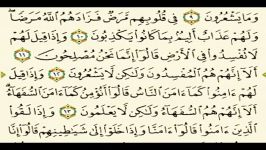 وَمَا يَشْعُرُونَ ٩ فِى قُلُوبِهِم مَّرَضٌ فَزَادَهُمُ ٱللَّهُ مَرَضًا
وَلَهُمْ عَذَابٌ أَلِيمٌۢ بِمَا كَانُوا۟ يَكْذِبُونَ ١٠ وَإِذَا قِيلَ لَهُمْ
لَا تُفْسِدُوا۟ فِى ٱلْأَرْضِ قَالُوٓا۟ إِنَّمَا نَحْنُ مُصْلِحُونَ ١١
أَلَآ إِنَّهُمْ هُمُ ٱلْمُفْسِدُونَ وَلَٰكِن لَّا يَشْعُرُونَ ١٢ وَإِذَا قِيلَ
لَهُمْ ءَامِنُوا۟ كَمَآ ءَامَنَ ٱلنَّاسُ قَالُوٓا۟ أَنُؤْمِنُ كَمَآ ءَامَنَ ٱلسُّفَهَآءُ
أَلَآ إِنَّهُمْ هُمُ ٱلسُّفَهَآءُ وَلَٰكِن لَّا يَعْلَمُونَ ١٣ وَإِذَا لَقُوا۟
ٱلَّذِينَ ءَامَنُوا۟ قَالُوٓا۟ ءَامَنَّا وَإِذَا خَلَوْا۟ إِلَىٰ شَيَٰطِينِهِمْ قَالُوٓا۟ إِنَّا